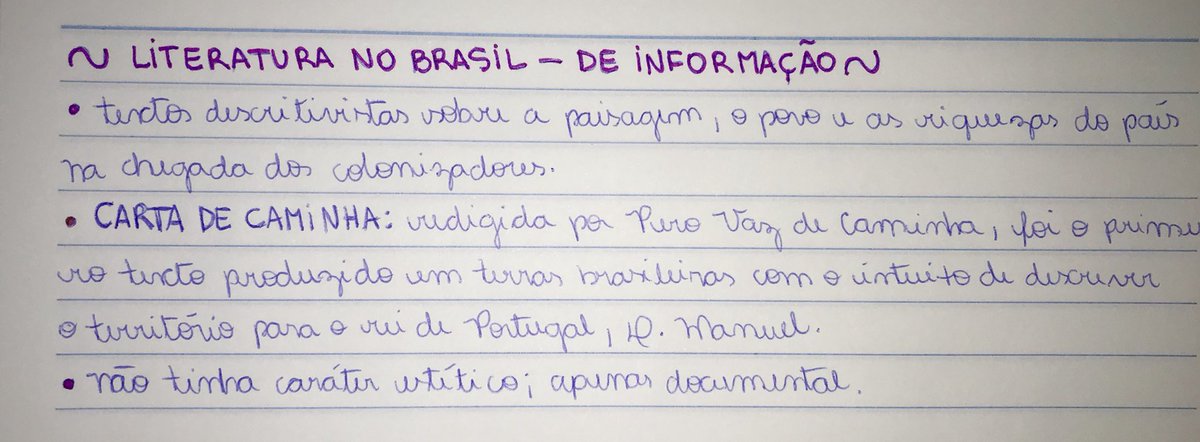 ~ LITERATURA NO BRASIL - DE INFORMAÇÃO ~
• textos descritivistas sobre a paisagem, o povo e as riquezas do país
na chegada dos colonizadores.
• CARTA DE CAMINHA: redigida por Pero Vaz de Caminha, foi o primei
ro texto produzido em terras brasileiras com o intuito de descrever
o território para o rei de Portugal, D. Manuel.
• não tinha caráter estético; apenas documental.